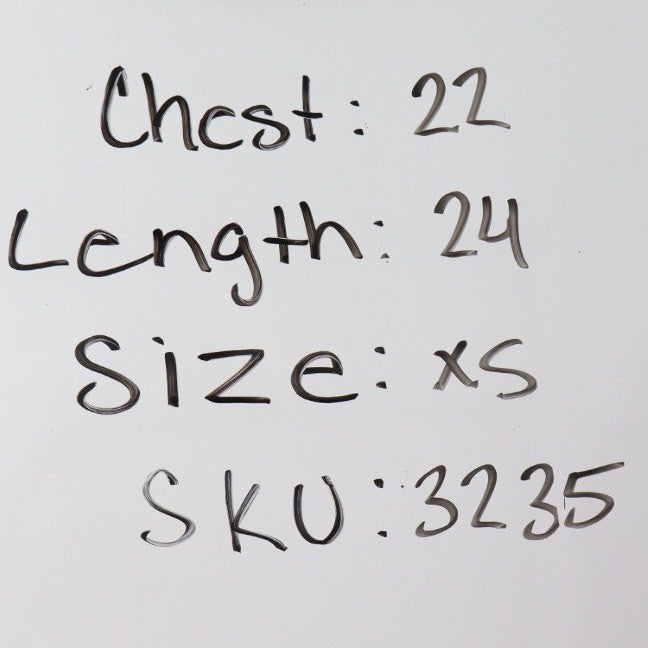 Chest: 22
Length: 24
Size: XS
SKU: 3235